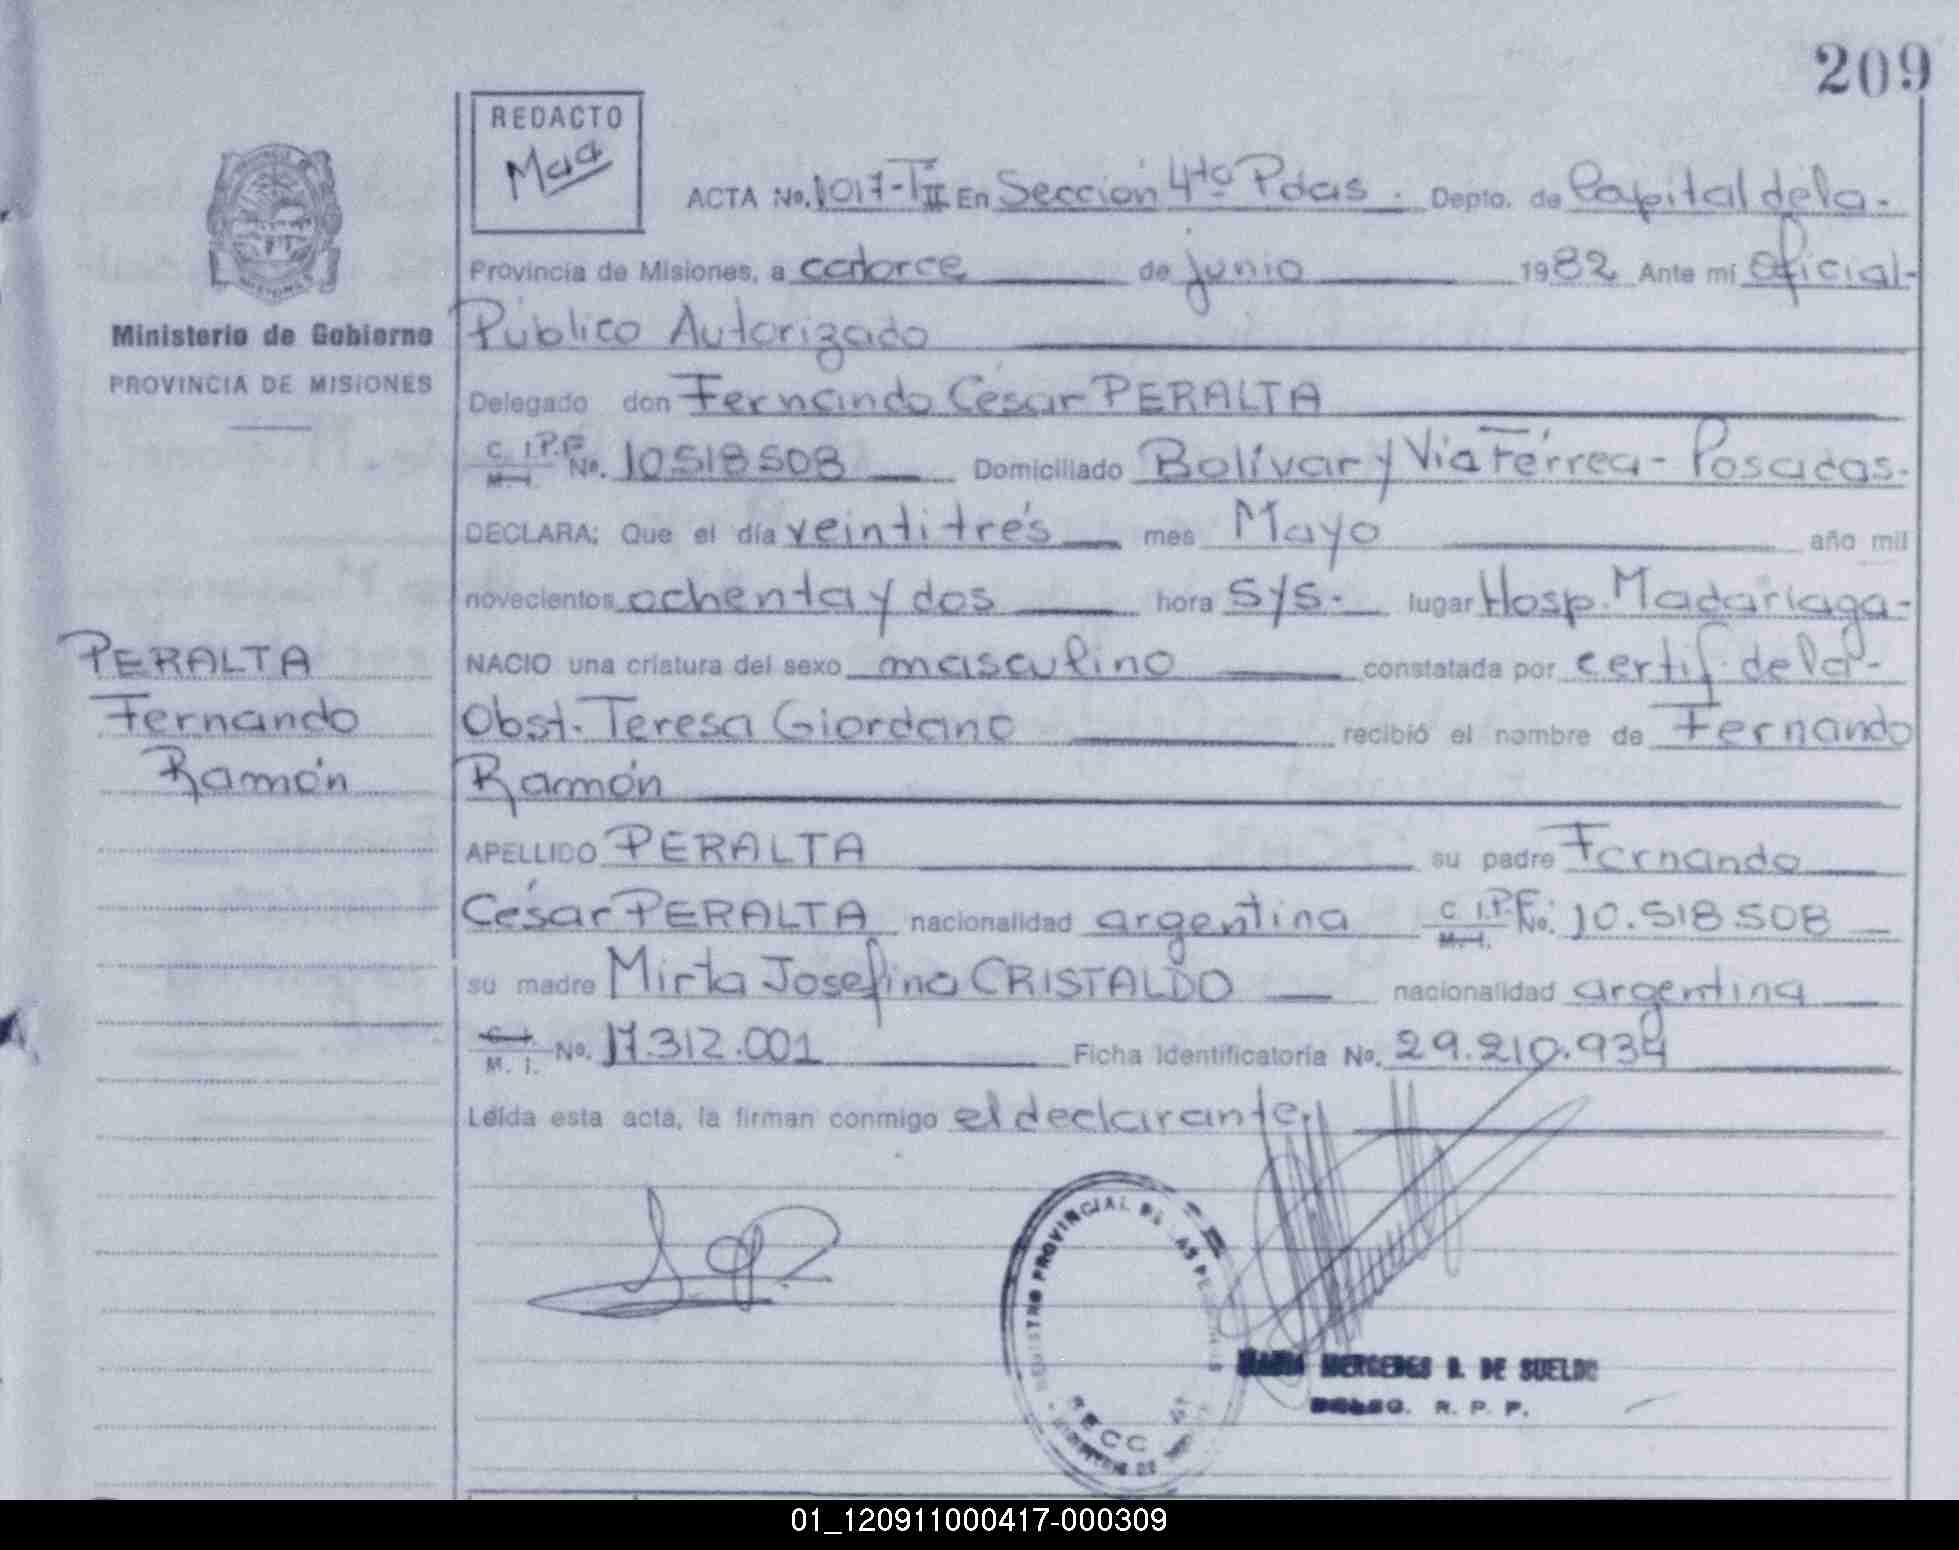 209
REDACTO
Maa
ACTA No. 1017-TII En Sección 4ta Pdas. Depto. de Capital de la-
Provincia de Misiones, a catorce de junio 1982 Ante mí Oficial-
Ministerio de Gobierno
PROVINCIA DE MISIONES
Público Autorizado
Delegado don Fernando César PERALTA
C. I.P.F. M.I. No. 10518508 Domiciliado Bolívar y Vía Férrea - Posadas.
DECLARA; Que el día veintitrés mes Mayo año mil
novecientos ochenta y dos hora 5y5.- lugar Hosp. Madariaga-
PERALTA
Fernando
Ramón
NACIO una criatura del sexo masculino constatada por certif. de la-
Obst. Teresa Giordano recibió el nombre de Fernando
Ramón
APELLIDO PERALTA su padre Fernando
César PERALTA nacionalidad argentina C. I.P.F. M.I. No. 10.518.508
su madre Mirta Josefina CRISTALDO nacionalidad argentina
C.I. M. I. No. 17.312.001 Ficha Identificatoria No. 29.210.934
Leída esta acta, la firman conmigo el declarante.
PROVINCIAL DE LAS PERSONAS
SECC
MERCEDES B. DE SUELDO
DELEG. R. P. P.
01_120911000417-000309